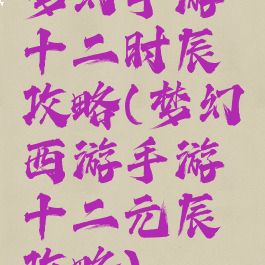 梦幻手游
十二时辰
攻略(梦幻
西游手游
十二元辰
攻略)